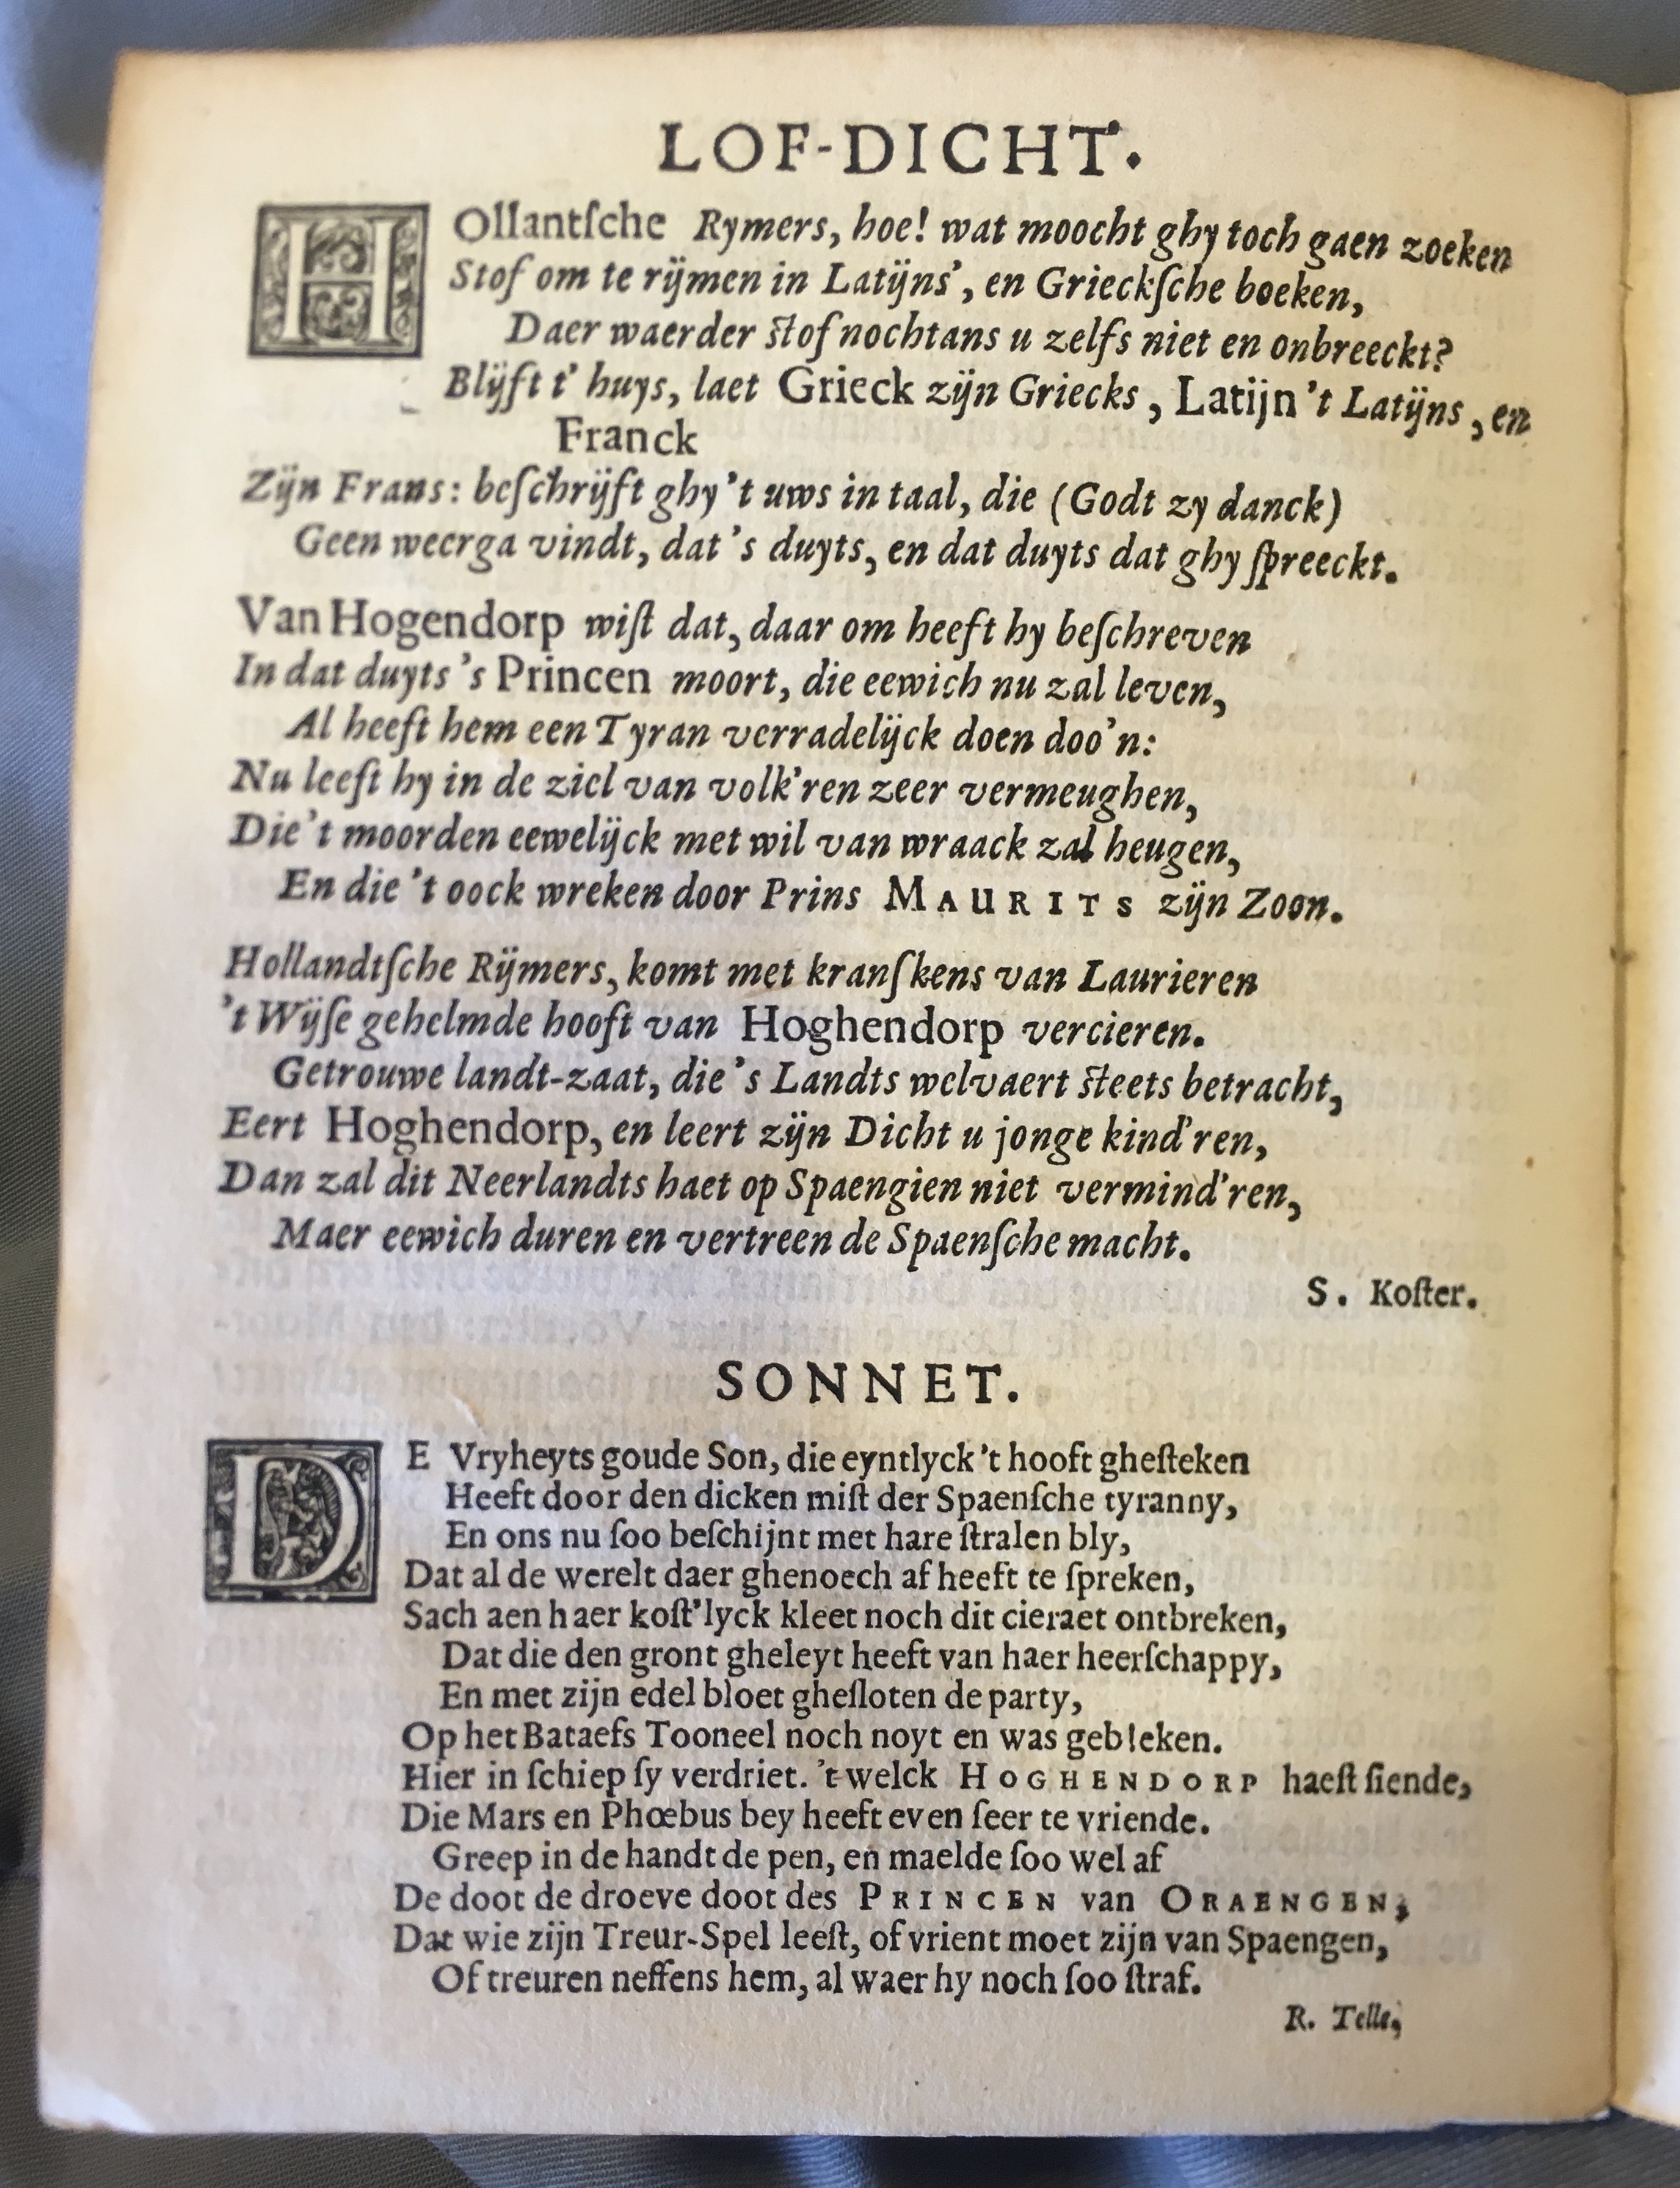 LOF-DICHT.
HOllantſche Rymers, hoe! wat moocht ghy toch gaen zoeken
Stof om te rijmen in Latijns', en Grieckſche boeken,
Daer waerder stof nochtans u zelfs niet en onbreeckt?
Blijft t' huys, laet Grieck zijn Griecks, Latijn 't Latijns, en
Franck
Zijn Frans: beſchrijft ghy 't uws in taal, die (Godt zy danck)
Geen weerga vindt, dat 's duyts, en dat duyts dat ghy ſpreeckt.
Van Hogendorp wiſt dat, daar om heeft hy beſchreven
In dat duyts 's Princen moort, die eewich nu zal leven,
Al heeft hem een Tyran verradelijck doen doo'n:
Nu leeft hy in de ziel van volk'ren zeer vermeughen,
Die 't moorden eewelijck met wil van wraack zal heugen,
En die 't oock wreken door Prins MAURITS zijn Zoon.
Hollandtſche Rijmers, komt met kranſkens van Laurieren
't Wijſe gehelmde hooft van Hoghendorp vercieren.
Getrouwe landt-zaat, die 's Landts welvaert steets betracht,
Eert Hoghendorp, en leert zijn Dicht u jonge kind'ren,
Dan zal dit Neerlandts haet op Spaengien niet vermind'ren,
Maer eewich duren en vertreen de Spaenſche macht.
S. Koſter.
SONNET.
DE Vryheyts goude Son, die eyntlyck 't hooft gheſteken
Heeft door den dicken miſt der Spaenſche tyranny,
En ons nu ſoo beſchijnt met hare ſtralen bly,
Dat al de werelt daer ghenoech af heeft te ſpreken,
Sach aen haer koſt'lyck kleet noch dit cieraet ontbreken,
Dat die den gront gheleyt heeft van haer heerſchappy,
En met zijn edel bloet gheſloten de party,
Op het Bataefs Tooneel noch noyt en was gebleken.
Hier in ſchiep ſy verdriet. 't welck HOGHENDORP haeſt ſiende,
Die Mars en Phœbus bey heeft even ſeer te vriende.
Greep in de handt de pen, en maelde ſoo wel af
De doot de droeve doot des PRINCEN van ORAENGEN,
Dat wie zijn Treur-Spel leeſt, of vrient moet zijn van Spaengen,
Of treuren neffens hem, al waer hy noch ſoo ſtraf.
R. Telle,